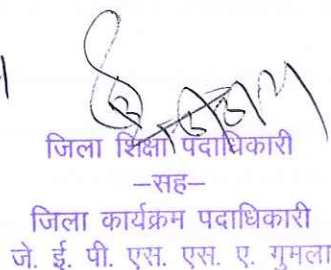 जिला शिक्षा पदाधिकारी
–सह–
जिला कार्यक्रम पदाधिकारी
जे. ई. पी. एस. एस. ए. गुमला